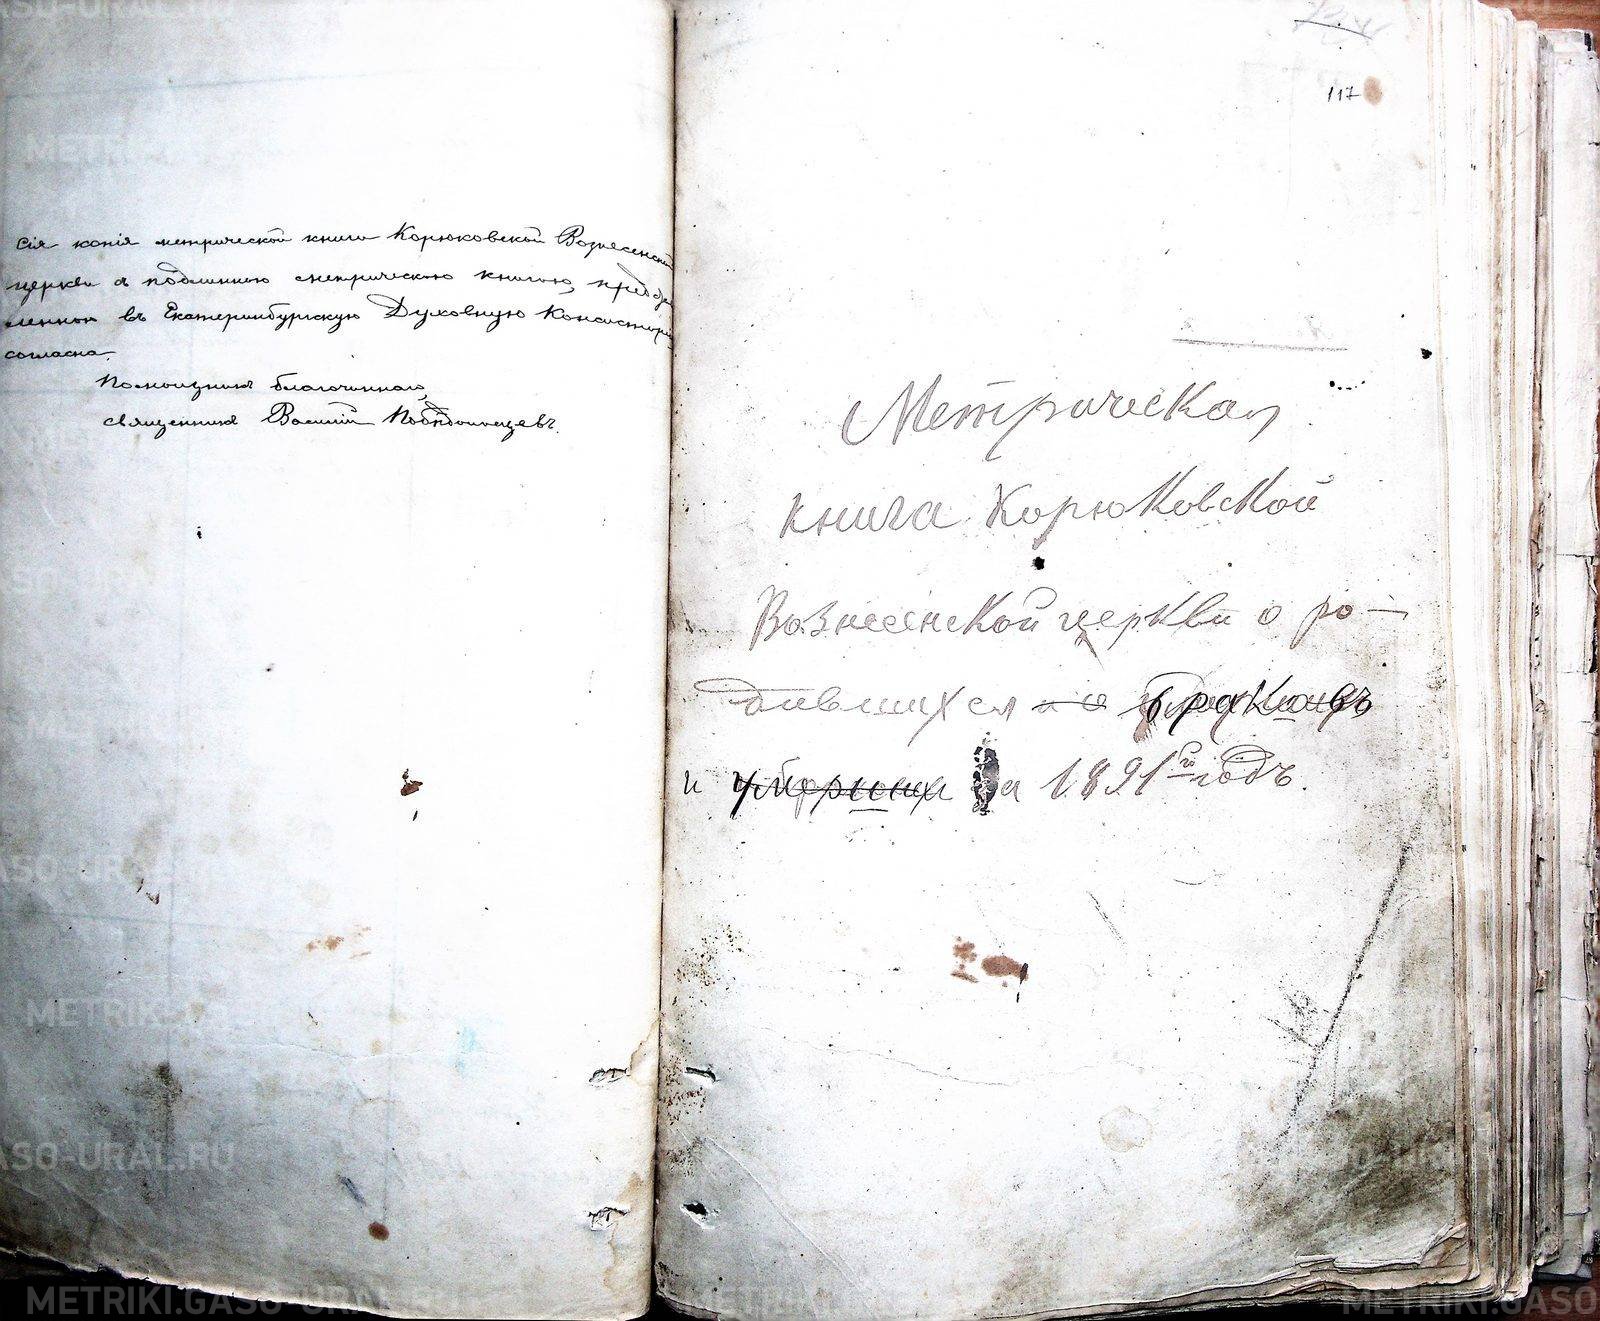 Сія копія метрической книги Корюковской Вознесенской
церкви съ подлинною метрическою книгою, представ
ленною въ Екатеринбургскую Духовную Консисторію
согласна.
Помощникъ благочиннаго,
священникъ Василій Побѣдоносцевъ.
117
Метрическая
книга Корюковской
Вознесенской церкви о ро-
дившихся и о бракахъ
и умершихъ за 1891го годъ.
METRIKI.GASO-URAL.RU